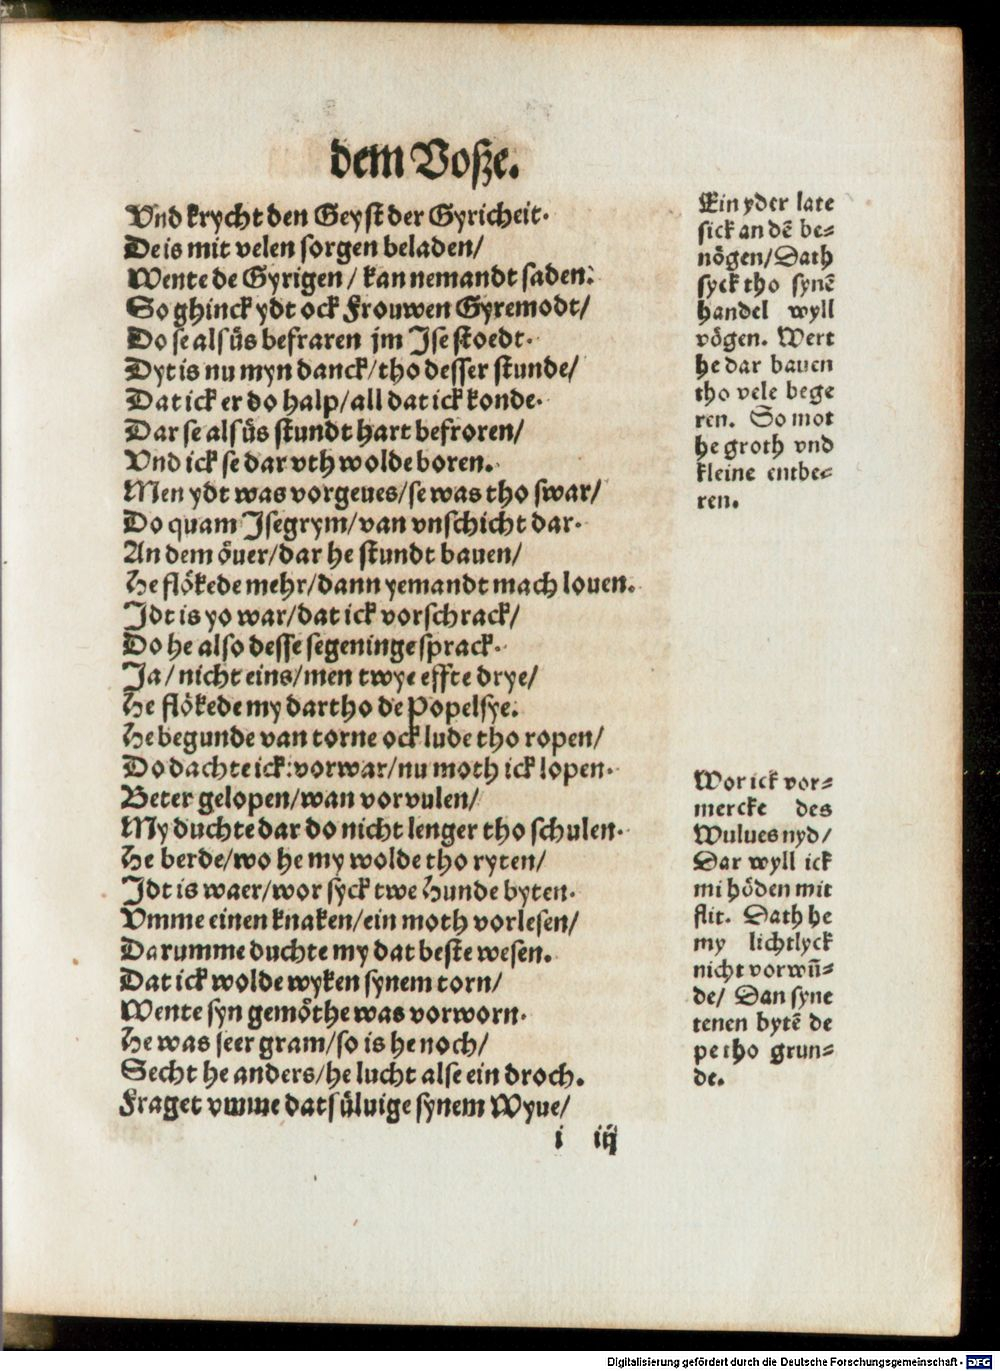 dem Voſze.
Vnd krycht den Geyſt der Gyricheit.
De is mit velen ſorgen beladen/
Wente de Gyrigen / kan nemandt ſaden.
So ghinck ydt ock Frouwen Gyremodt/
Do ſe alſüs befraren jm Jſe ſtoedt.
Dyt is nu myn danck/tho deſſer ſtunde/
Dat ick er do halp/all dat ick konde.
Dar ſe alſüs ſtundt hart befroren/
Vnd ick ſe dar vth wolde boren.
Men ydt was vorgeues/ſe was tho ſwar/
Do quam Jſegrym/van vnſchicht dar.
An dem öuer/dar he ſtundt bauen/
He flökede mehr/dann yemandt mach louen.
Jdt is yo war/dat ick vorſchrack/
Do he alſo deſſe ſegeninge ſprack.
Ja/ nicht eins/men twye effte drye/
He flökede my dartho de Popelſye.
He begunde van torne ock lude tho ropen/
Do dachte ick: vorwar/nu moth ick lopen.
Beter gelopen/wan vorvulen/
My duchte dar do nicht lenger tho ſchulen.
He berde/wo he my wolde tho ryten/
Jdt is waer/wor ſyck twe Hunde byten.
Vmme einen knaken/ein moth vorleſen/
Darumme duchte my dat beſte weſen.
Dat ick wolde wyken ſynem torn/
Wente ſyn gemöthe was vorworn.
He was ſeer gram/ſo is he noch/
Secht he anders/he lucht alſe ein droch.
Fraget vmme datſülvige ſynem Wyue/
i iij
Ein yder late
ſick an dē be⸗
nögen/Dath
ſyck tho ſynē
handel wyll
vögen. Wert
he dar bauen
tho vele bege
ren. So mot
he groth vnd
kleine entbe⸗
ren.
Wor ick vor⸗
mercke des
Wulues nyd/
Dar wyll ick
mi höden mit
flit. Dath he
my lichtlyck
nicht vorwū⸗
de/ Dan ſyne
tenen bytē de
pe tho grun⸗
de.
Digitalisierung gefördert durch die Deutsche Forschungsgemeinschaft - DFG